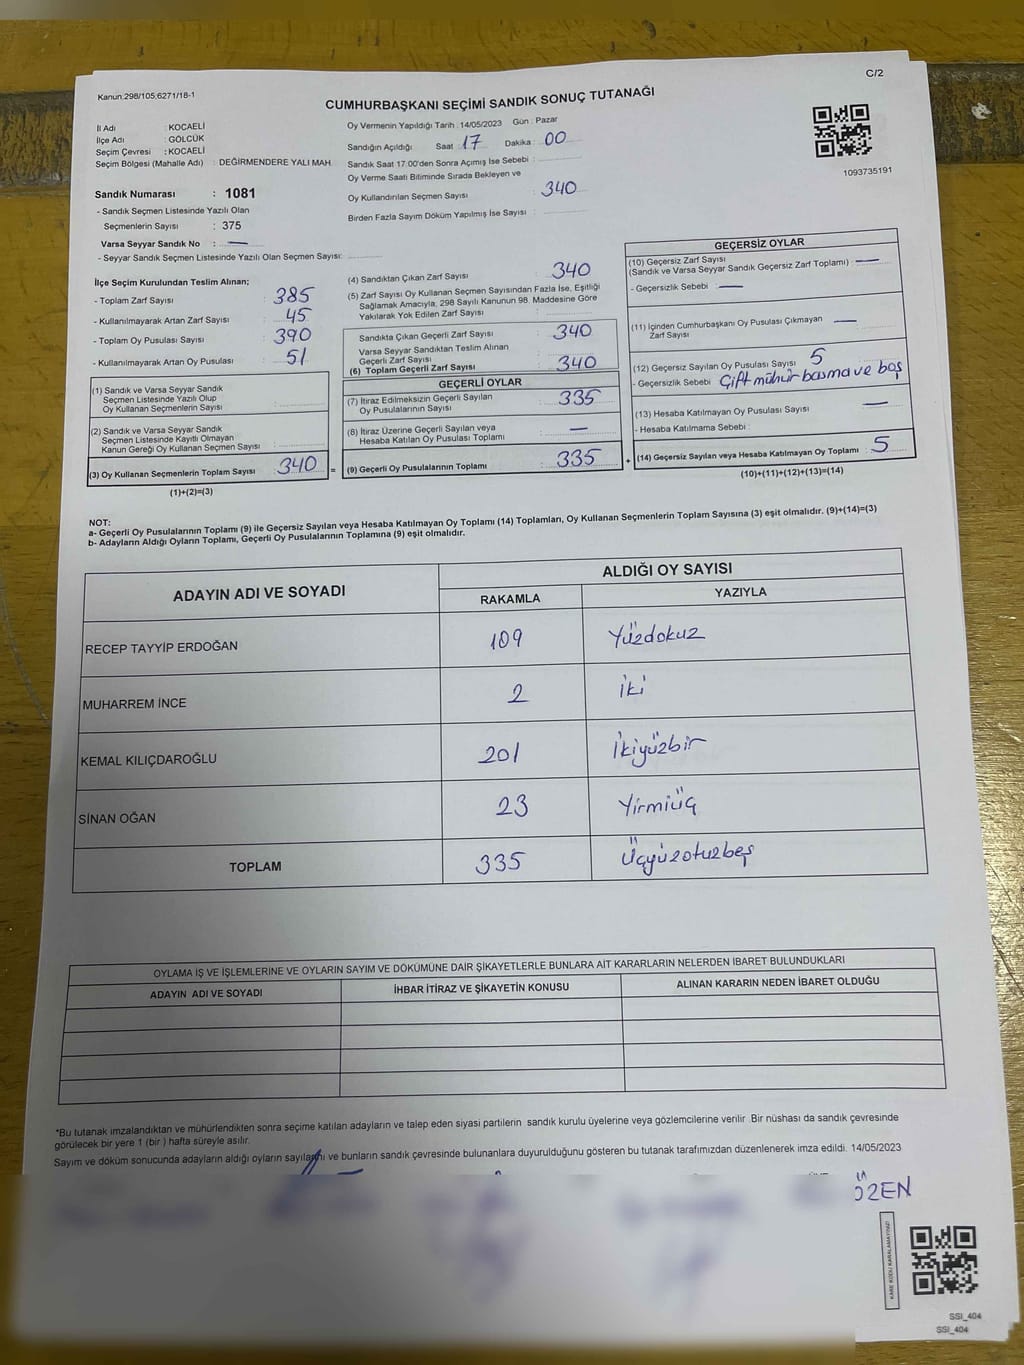 C/2
Kanun:298/105,6271/18-1
CUMHURBAŞKANI SEÇİMİ SANDIK SONUÇ TUTANAĞI
İl Adı : KOCAELİ
İlçe Adı : GÖLCÜK
Seçim Çevresi : KOCAELİ
Seçim Bölgesi (Mahalle Adı) : DEĞİRMENDERE YALI MAH.
Oy Vermenin Yapıldığı Tarih : 14/05/2023 Gün : Pazar
Sandığın Açıldığı Saat : 17 Dakika : 00
Sandık Saat 17:00'den Sonra Açımış İse Sebebi :
Oy Verme Saati Bitiminde Sırada Bekleyen ve
Oy Kullandırılan Seçmen Sayısı : 340
Birden Fazla Sayım Döküm Yapılmış İse Sayısı :
1093735191
Sandık Numarası : 1081
- Sandık Seçmen Listesinde Yazılı Olan
Seçmenlerin Sayısı : 375
Varsa Seyyar Sandık No : —
- Seyyar Sandık Seçmen Listesinde Yazılı Olan Seçmen Sayısı:
İlçe Seçim Kurulundan Teslim Alınan;
- Toplam Zarf Sayısı : 385
- Kullanılmayarak Artan Zarf Sayısı : 45
- Toplam Oy Pusulası Sayısı : 390
- Kullanılmayarak Artan Oy Pusulası : 51
(1) Sandık ve Varsa Seyyar Sandık
Seçmen Listesinde Yazılı Olup
Oy Kullanan Seçmenlerin Sayısı :
(2) Sandık ve Varsa Seyyar Sandık
Seçmen Listesinde Kayıtlı Olmayan
Kanun Gereği Oy Kullanan Seçmen Sayısı :
(3) Oy Kullanan Seçmenlerin Toplam Sayısı : 340 =
(1)+(2)=(3)
(4) Sandıktan Çıkan Zarf Sayısı : 340
(5) Zarf Sayısı Oy Kullanan Seçmen Sayısından Fazla İse, Eşitliği
Sağlamak Amacıyla, 298 Sayılı Kanunun 98. Maddesine Göre
Yakılarak Yok Edilen Zarf Sayısı :
Sandıkta Çıkan Geçerli Zarf Sayısı : 340
Varsa Seyyar Sandıktan Teslim Alınan
Geçerli Zarf Sayısı :
(6) Toplam Geçerli Zarf Sayısı : 340
GEÇERLİ OYLAR
(7) İtiraz Edilmeksizin Geçerli Sayılan
Oy Pusulalarının Sayısı : 335
(8) İtiraz Üzerine Geçerli Sayılan veya
Hesaba Katılan Oy Pusulası Toplamı : —
(9) Geçerli Oy Pusulalarının Toplamı : 335 +
GEÇERSİZ OYLAR
(10) Geçersiz Zarf Sayısı
(Sandık ve Varsa Seyyar Sandık Geçersiz Zarf Toplamı) : —
- Geçersizlik Sebebi : —
(11) İçinden Cumhurbaşkanı Oy Pusulası Çıkmayan
Zarf Sayısı : —
(12) Geçersiz Sayılan Oy Pusulası Sayısı : 5
- Geçersizlik Sebebi : Çift mühür basma ve boş
(13) Hesaba Katılmayan Oy Pusulası Sayısı : —
- Hesaba Katılmama Sebebi :
(14) Geçersiz Sayılan veya Hesaba Katılmayan Oy Toplamı : 5
(10)+(11)+(12)+(13)=(14)
NOT:
a- Geçerli Oy Pusulalarının Toplamı (9) ile Geçersiz Sayılan veya Hesaba Katılmayan Oy Toplamı (14) Toplamları, Oy Kullanan Seçmenlerin Toplam Sayısına (3) eşit olmalıdır. (9)+(14)=(3)
b- Adayların Aldığı Oyların Toplamı, Geçerli Oy Pusulalarının Toplamına (9) eşit olmalıdır.
ADAYIN ADI VE SOYADI ALDIĞI OY SAYISI
RAKAMLA YAZIYLA
RECEP TAYYİP ERDOĞAN 109 Yüzdokuz
MUHARREM İNCE 2 İki
KEMAL KILIÇDAROĞLU 201 İkiyüzbir
SİNAN OĞAN 23 Yirmiüç
TOPLAM 335 Üçyüzotuzbeş
OYLAMA İŞ VE İŞLEMLERİNE VE OYLARIN SAYIM VE DÖKÜMÜNE DAİR ŞİKAYETLERLE BUNLARA AİT KARARLARIN NELERDEN İBARET BULUNDUKLARI
ADAYIN ADI VE SOYADI İHBAR İTİRAZ VE ŞİKAYETİN KONUSU ALINAN KARARIN NEDEN İBARET OLDUĞU
*Bu tutanak imzalandıktan ve mühürlendikten sonra seçime katılan adayların ve talep eden siyasi partilerin sandık kurulu üyelerine veya gözlemcilerine verilir. Bir nüshası da sandık çevresinde
görülecek bir yere 1 (bir ) hafta süreyle asılır.
Sayım ve döküm sonucunda adayların aldığı oyların sayılarını ve bunların sandık çevresinde bulunanlara duyurulduğunu gösteren bu tutanak tarafımızdan düzenlenerek imza edildi. 14/05/2023
ÖZEN
KARE KODU KARALAMAYINIZ!
SSI_404
SSI_404